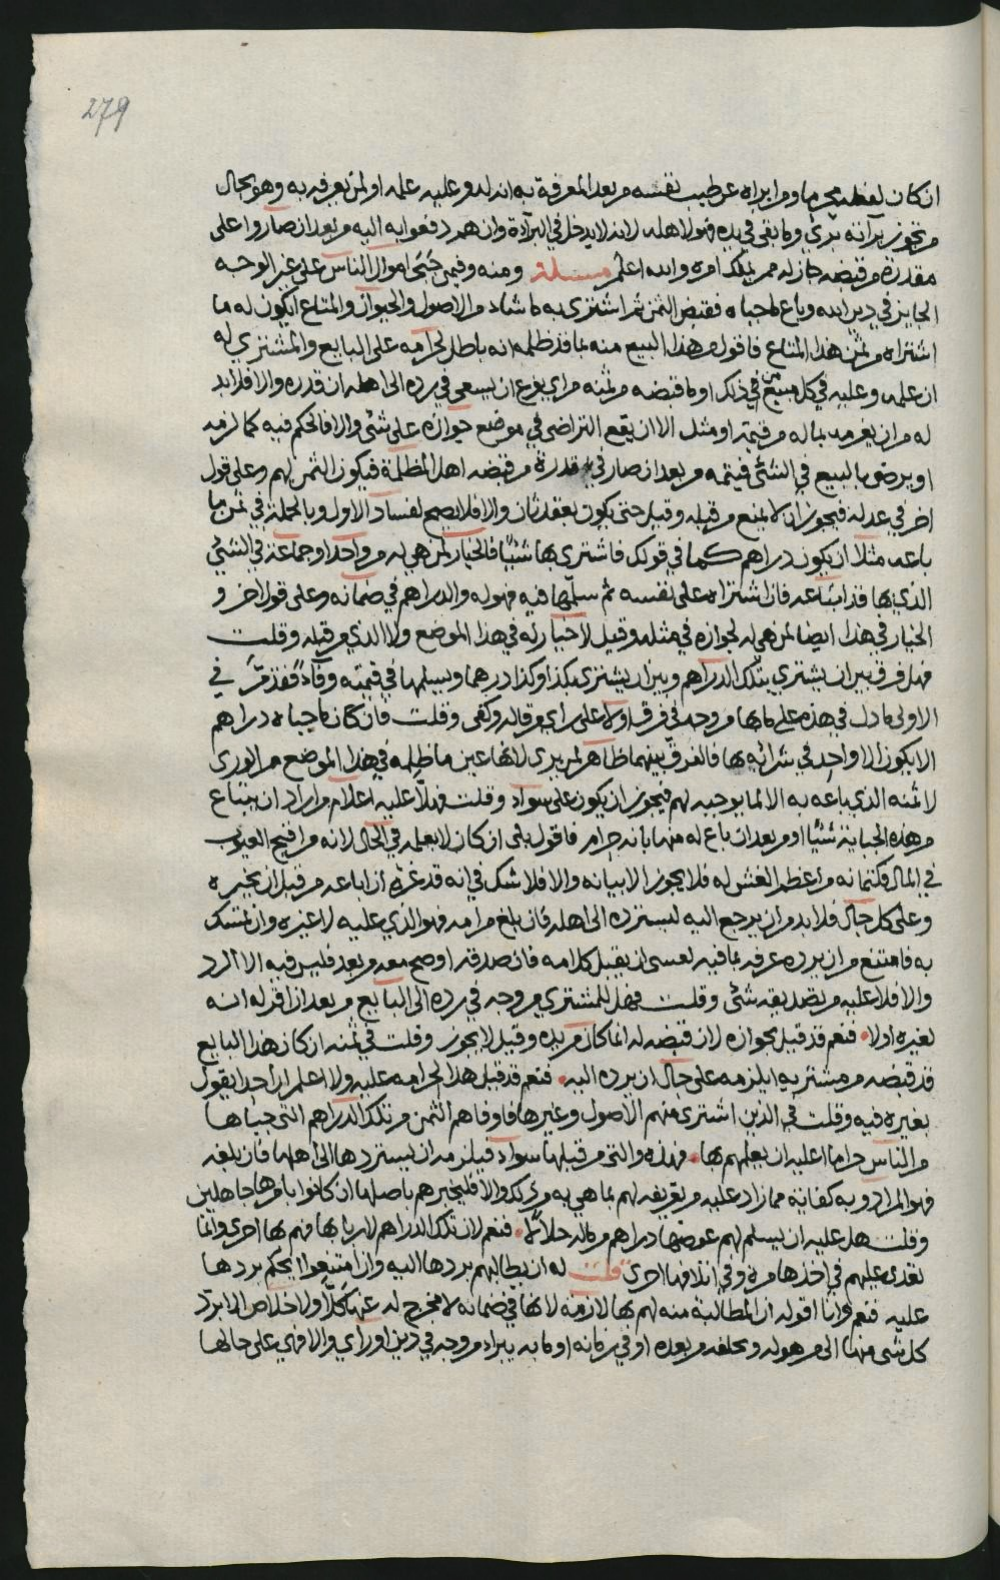 279
ان كان لفظه محرما ومن ابراه عن طيب نفسه من بعد المعرفة به انه له وعليه علمه او لمن يعرفه به وهو بحال
من تجوز برآنه بري وما بقي في يده فهو لاهله لانه لا يدخل في البرآءة وان هم دفعوا به اليه من بعد ان صاروا على
مقدرة من قبضه جاز له ممن يملك امره والله اعلم مسئلة ومنه وفيمن جبى اموال الناس على غير الوجه
الجايز في دين الله وباع ما جباه فقبض الثمن ثم اشترى به ما شاء من الاصول والحيوان والمتاع ايكون له ما
اشتراه من ثمن هذا المتاع فاقول ان هذا البيع منه بما قد ظلمه انه باطل لحرامه على البايع والمشتري له
ان علمه وعليه في كل مبيع من ذلك او ما قبضه من ثمنه من اي نوع ان يسعى في رده الى اهله ان قدره والا فلا بد
له من ان يغرمه بماله من قيمته او مثله الا ان يقع التراضي في موضع جوازه على شئ والا فالحكم فيه كما لزمه
او يرضوا بالبيع في الشئ فيتمه من بعد ان صار في مقدرة من قبضه اهل المظلمة فيكون الثمن لهم وعلى قول
اخر في عدله فيجوز ان لا يمنع من قبله وقيل حتى يكون بعقد ثان والا فلا يصح لفساد الاول وبالجملة في ثمن ما
باعه مثلا ان يكون دراهم كما في قولك فاشترى بها شيئا فالخيار لمن هي له من واحد او جماعة في الشئ
الذي بها قد ابتاعه فان اشتراه على نفسه ثم سلمها فيه فهو له والدراهم في ضمانه وعلى قول اخر و
الخيار في هذا ايضا لمن هي له لجوازه في مثله وقيل لا خيار له في هذا الموضع ولا الذي من قبله وقلت
فهل فرق بين ان يشتري بتلك الدراهم وبين ان يشتري بكذا وكذا درهما ويسلمها في قيمته وقاءً فقد مرّ في
الاولى ما دل في هذه على ما بها من وجه في فرق اولا على راي من قاله وكفى وقلت فان كان ما جباه دراهم
الا يكون الا واحد في شرائه بها فالفرق بينهما ظاهر لمن يرى لانها عين ما ظلمه في هذا الموضع من الورى
لا ثمنه الذي باعه به الا لما يوجبه لهم فيجوز ان يكون على سواء وقلت فهلا عليه اعلام من اراد ان يبتاع
من هذه الجباية شيئا او من بعد ان باع له منها بانه حرام فاقول بلى ان كان لا يعلمه في الحال لانه من اقبح العيوب
في المال وكتمانه من اعظم الغش له فلا يجوز الا بيانه والا فلا شك في انه قد غره ان باعه من قبل ان يخبره
وعلى كل حال فلا بد من ان يرجع اليه ليسترده الى اهله فان بلغ مرامه فهو الذي عليه لا غيره وان تمسك
به فامتنع من ان يرده عرفه بما فيه لعسى ان يقبل كلامه فان صدقه او صح معه من بعد فليس فيه الا الرد
والا فلا عليه من تصديقه شئ وقلت فهل للمشتري من وجه في رده الى البايع من بعد ان اقر له انه
لغيره اولا فنعم قد قيل بجوازه لان قبضه له انما كان من يده وقيل لا يجوز وقلت في ثمنه ان كان هذا البايع
قد قبضه من مشتريه ايلزمه على حال ان يرده اليه فنعم قد قيل هذا لحرامه عليه ولا اعلم ان احدا يقول
بغيره فيه وقلت في الذين اشترى منهم الاصول وغيرها فاوفاهم الثمن من تلك الدراهم التي جباها
من الناس حراما اعليه ان يعلمهم بها فهذه والتي من قبلها سواء فيلزمه ان يستردها الى اهلها فان بلغه
فهو المراد وبه كفاية مما زاد عليه من تعريفه لهم بما هي به من ذلك والا فليخبرهم باصلها ان كانوا بامرها جاهلين
وقلت هل عليه ان يسلم لهم عوضها دراهم من ماله حلالا فنعم لان تلك الدراهم لاربابها فهم بها احرى وانما
تعدى عليهم في اخذها مرة وفي اتلافها اخرى قلت له ان يطالبهم بردها اليه وان امتنعوا ايحكم بردها
عليه فنعم وانا اقوله ان المطالبة منه لهم بها لازمة لانها في ضمانه لا مخرج له عنها كلا ولا خلاص الا برد
كل شئ منها الى من هو له ويخلفه من بعده او في زمانه او ما به يبراء من وجه في دين او راي والا فهي على حالها